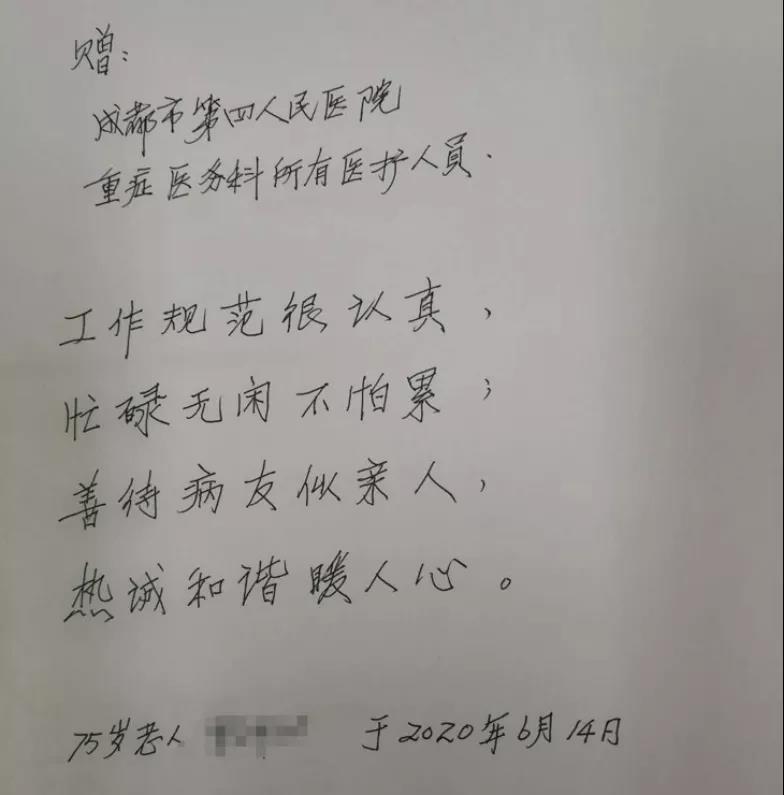 赠：
成都市第四人民医院
重症医务科所有医护人員.
工作规范很认真，
忙碌无闲不怕累；
善待病友似亲人，
热诚和谐暖人心。
75岁老人 于2020年6月14日